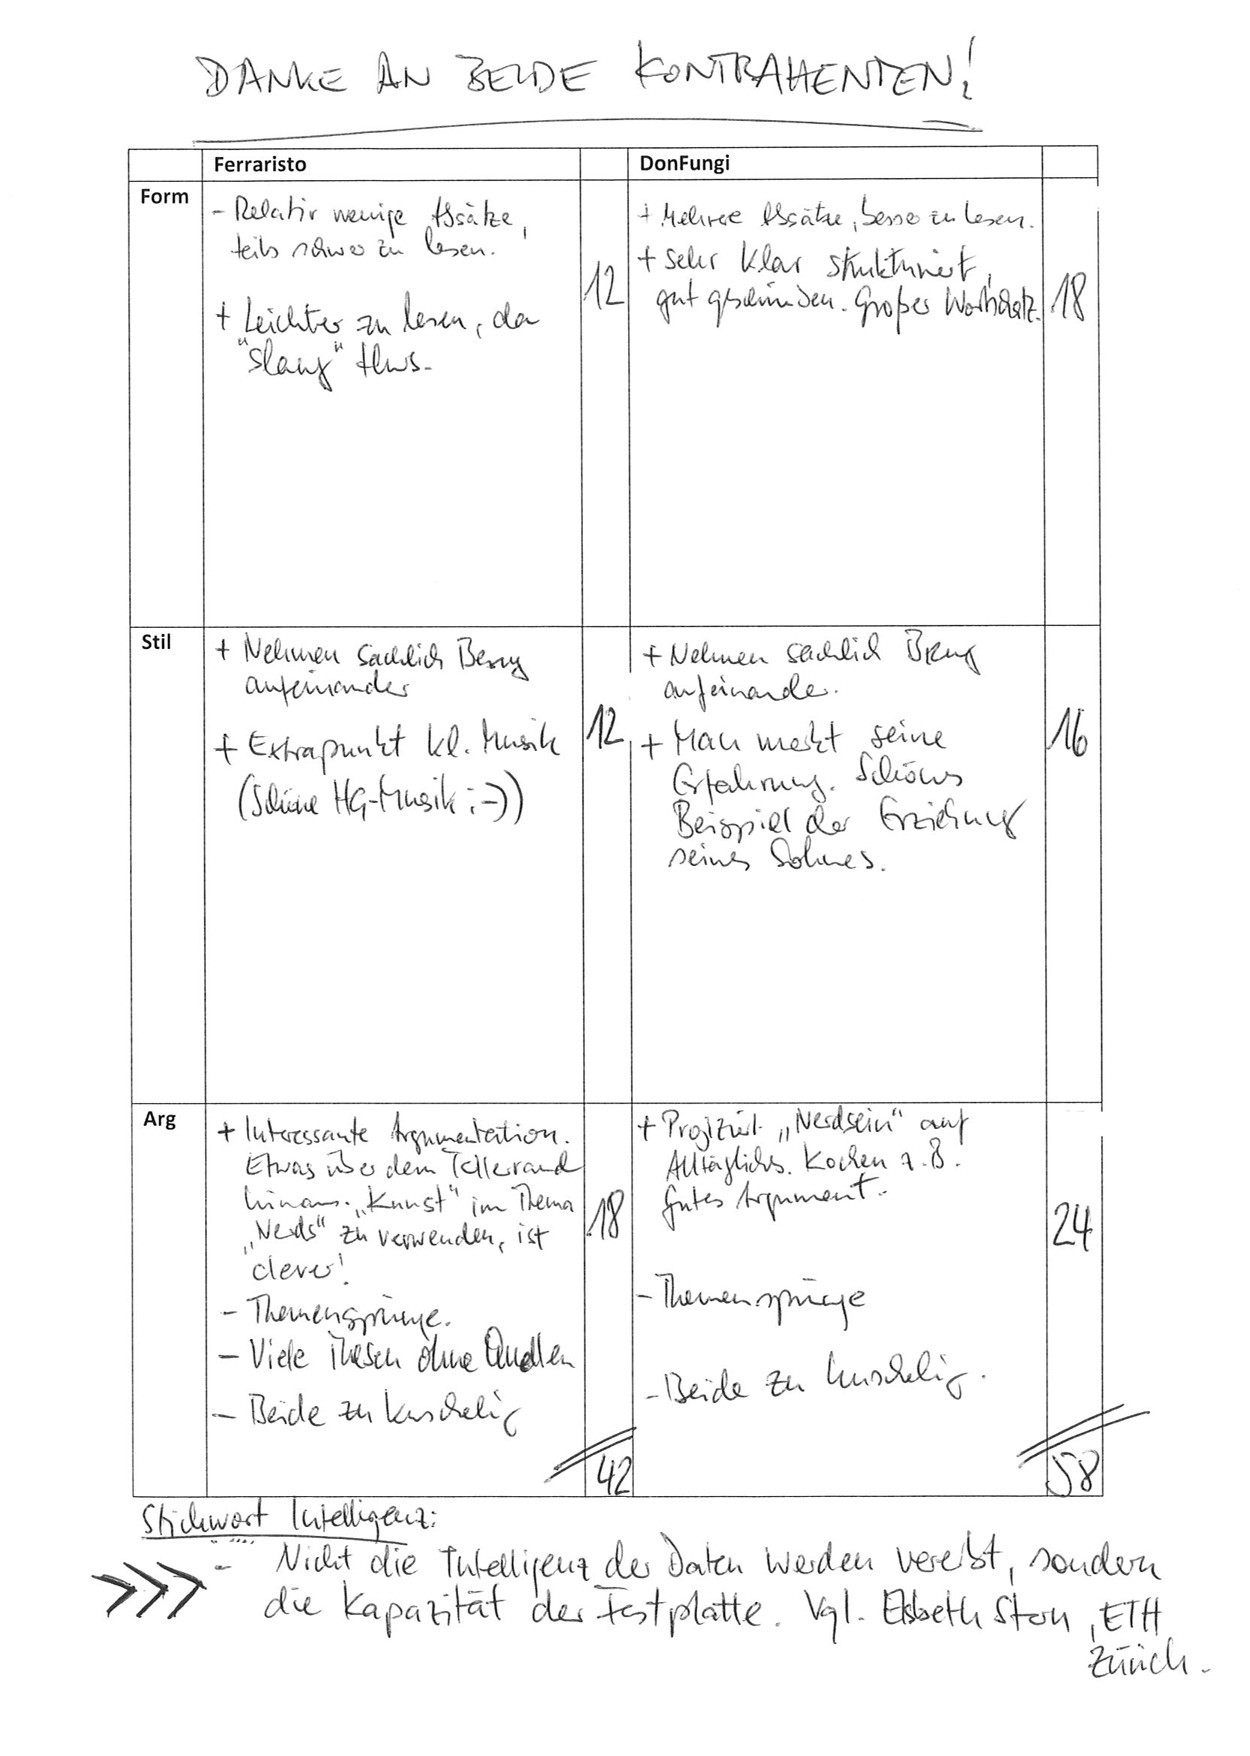 DANKE AN BEIDE KONTRAHENTEN!
Ferraristo
DonFungi
Form
- Relativ wenige Absätze,
teils schwer zu lesen.
+ Leichter zu lesen, da
"slang"
12
+ Mehrere Absätze, besser zu lesen.
+ Sehr klar strukturiert,
gut geschrieben. Großer Wortschatz.
18
Stil
+ Nehmen sachlich Bezug
aufeinander
+ Extrapunkt kl. Musik
(Schöne HG-Musik ;-))
12
+ Nehmen sachlich Bezug
aufeinander.
+ Man merkt seine
Erfahrung. Schönes
Beispiel der Erziehung
seines Sohnes.
16
Arg
+ Interessante Argumentation.
Etwas über dem Tellerrand
hinaus. „Kunst" im Thema
„Nerds" zu verwenden, ist
clever!
- Themensprünge.
- Viele Thesen ohne Quellen
- Beide zu kuschelig
18
42
+ Projiziert „Nerdsein" auf
Alltägliches. Kochen z.B.
gutes Argument.
- Themensprünge
- Beide zu kuschelig.
24
58
Stichwort Intelligenz:
>>> - Nicht die Intelligenz der Daten werden vererbt, sondern
die Kapazität der Festplatte. Vgl. Elsbeth Stern, ETH
Zürich.